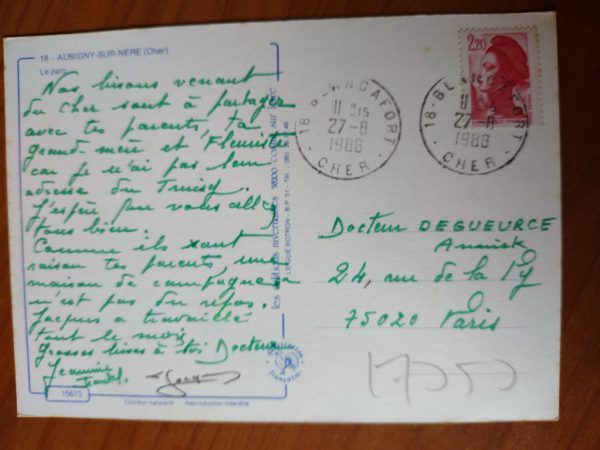 18 - AUBIGNY-SUR-NERE (Cher)
Le parc
Nos bisous venant
du Cher sont à partager
avec tes parents, ta
grand-mère et
car je n'ai pas leur
adresse du
J'espère que vous allez
tous bien.
Comme ils ont
raison tes parents, une
maison de campagne
n'est pas du repos.
Jacques a travaillé
tout le mois
Grosses bises à toi Docteur
Jeannine
15673
Couleur naturelle Reproduction interdite
LESUEUR BOTRON - B.P. 51 - Tél.
2,20
18-BLANCAFORT
11 H15
27-8
1988
CHER
18-BLANCAFORT
11 H15
27-8
1988
CHER
Docteur DEGUEURCE
Annick
24, rue de la Py
75020 Paris